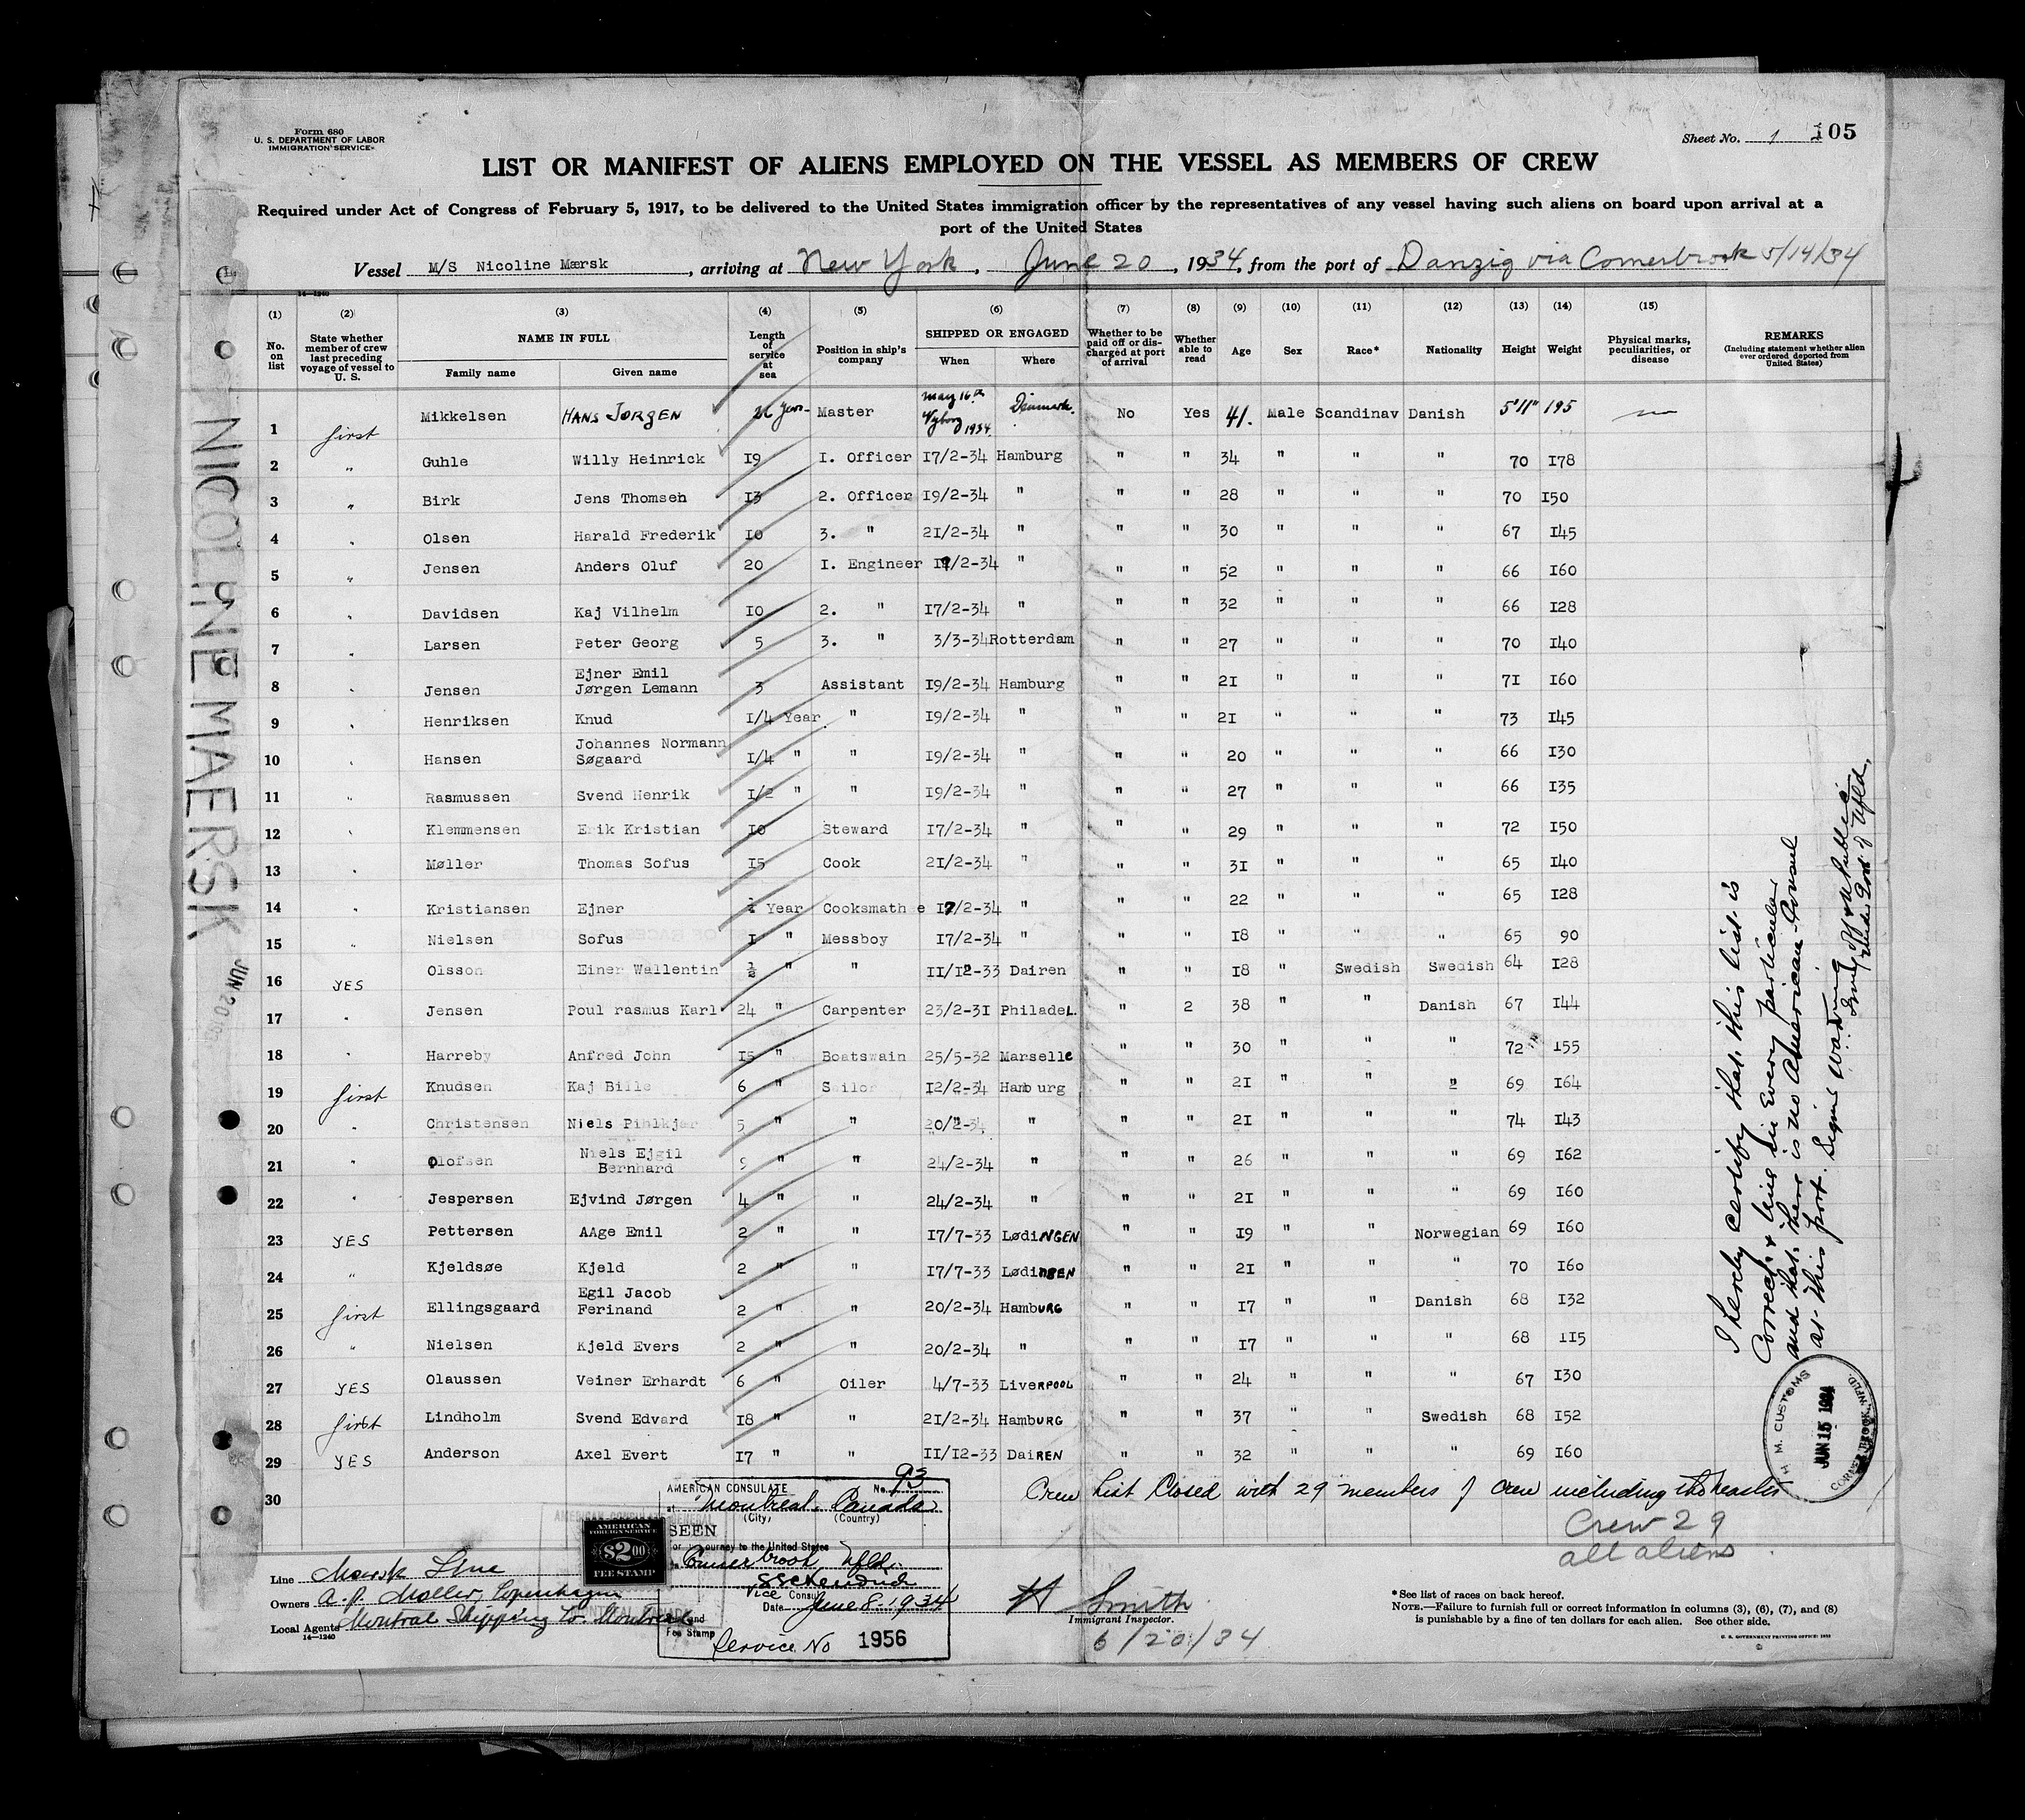 Form 680
U. S. DEPARTMENT OF LABOR
IMMIGRATION SERVICE
Sheet No. 1 105
LIST OR MANIFEST OF ALIENS EMPLOYED ON THE VESSEL AS MEMBERS OF CREW
Required under Act of Congress of February 5, 1917, to be delivered to the United States immigration officer by the representatives of any vessel having such aliens on board upon arrival at a
port of the United States
Vessel M/S Nicoline Mærsk, arriving at New York, June 20, 1934, from the port of Danzig via Cornerbrook 5/14/34
14-1240
(1) No. on list (2) State whether member of crew last preceding voyage of vessel to U. S. (3) NAME IN FULL Family name Given name (4) Length of service at sea (5) Position in ship's company (6) SHIPPED OR ENGAGED When Where (7) Whether to be paid off or discharged at port of arrival (8) Whether able to read (9) Age (10) Sex (11) Race* (12) Nationality (13) Height (14) Weight (15) Physical marks, peculiarities, or disease REMARKS (Including statement whether alien ever ordered deported from United States)
1 first Mikkelsen HANS JORGEN Master May 16th 1934 Denmark. No Yes 41. Male Scandinav Danish 5'11" 195
2 " Guhle Willy Heinrick 19 I. Officer 17/2-34 Hamburg " " 34 " " " 70 178
3 " Birk Jens Thomsen 13 2. Officer 19/2-34 " " " 28 " " " 70 150
4 " Olsen Harald Frederik 10 3. " 21/2-34 " " " 30 " " " 67 145
5 " Jensen Anders Oluf 20 I. Engineer 19/2-34 " " " 52 " " " 66 160
6 " Davidsen Kaj Vilhelm 10 2. " 17/2-34 " " " 32 " " " 66 128
7 " Larsen Peter Georg 5 3. " 3/3-34 Rotterdam " " 27 " " " 70 140
8 " Jensen Ejner Emil Jørgen Lemann 3 Assistant 19/2-34 Hamburg " " 21 " " " 71 160
9 " Henriksen Knud 1/4 Year " 19/2-34 " " " 21 " " " 73 145
10 " Hansen Johannes Normann Søgaard 1/4 " " 19/2-34 " " " 20 " " " 66 130
11 " Rasmussen Svend Henrik 1/2 " " 19/2-34 " " " 27 " " " 66 135
12 " Klemmensen Erik Kristian 10 Steward 17/2-34 " " " 29 " " " 72 150
13 " Møller Thomas Sofus 15 Cook 21/2-34 " " " 31 " " " 65 140
14 Kristiansen Ejner Year Cooksmath e 17/2-34 " " " 22 " " " 65 128
15 " Nielsen Sofus 1 " Messboy 17/2-34 " " " 18 " " " 65 90
16 YES Olsson Einer Wallentin ½ " " 11/12-33 Dairen " " 18 " Swedish Swedish 64 128
17 " Jensen Poul rasmus Karl 24 " Carpenter 23/2-31 Philadel. " 2 38 " " Danish 67 144
18 " Harreby Anfred John 15 " Boatswain 25/5-32 Marselle " " 30 " " " 72 155
19 first Knudsen Kaj Bille 6 " Sailor 12/2-34 Hamburg " " 21 " " " 69 164
20 " Christensen Niels Pihlkjær 5 " " 20/2-34 " " " 21 " " " 74 143
21 " Olofsen Niels Ejgil Bernhard 9 " " 24/2-34 " " " 26 " " " 69 162
22 " Jespersen Ejvind Jørgen 4 " " 24/2-34 " " " 21 " " " 69 160
23 YES Pettersen AAge Emil 2 " " 17/7-33 LødiNGEN " " 19 " " Norwegian 69 160
24 " Kjeldsøe Kjeld 2 " " 17/7-33 LødiNGEN " " 21 " " " 70 160
25 first Ellingsgaard Egil Jacob Ferinand 2 " " 20/2-34 HambURG " " 17 " " Danish 68 132
26 " Nielsen Kjeld Evers 2 " " 20/2-34 " " " 17 " " " 68 115
27 YES Olaussen Veiner Erhardt 6 " Oiler 4/7-33 LiveRPOOL " " 24 " " " 67 130
28 first Lindholm Svend Edvard 18 " " 21/2-34 HambURG " " 37 " " Swedish 68 152
29 YES Anderson Axel Evert 17 " " 11/12-33 DaiREN " " 32 " " " 69 160
30
Crew List Closed with 29 members of crew including the master
Crew 29
all aliens
NICOLINE MAERSK
JUN 20
I hereby certify that this list is
correct & true in every particular
and that there is no American Consul
at this port.
H. M. CUSTOMS
JUN 15 1934
CORNER BROOK, NFLD.
AMERICAN CONSULATE No. 93
at Montreal, Canada
(City) (Country)
SEEN
For journey to the United States
Cornerbrook Nfld.
Vice Consul
Date June 8-1934
Fee Stamp
Service No 1956
AMERICAN
FOREIGN SERVICE
$2.00
FEE STAMP
Line Maersk Line
Owners A. P. Moller, Copenhagen
Local Agents Montreal Shipping Co. Montreal
14-1240
H Smith
Immigrant Inspector.
6/20/34
*See list of races on back hereof.
NOTE.—Failure to furnish full or correct information in columns (3), (6), (7), and (8)
is punishable by a fine of ten dollars for each alien. See other side.
U. S. GOVERNMENT PRINTING OFFICE